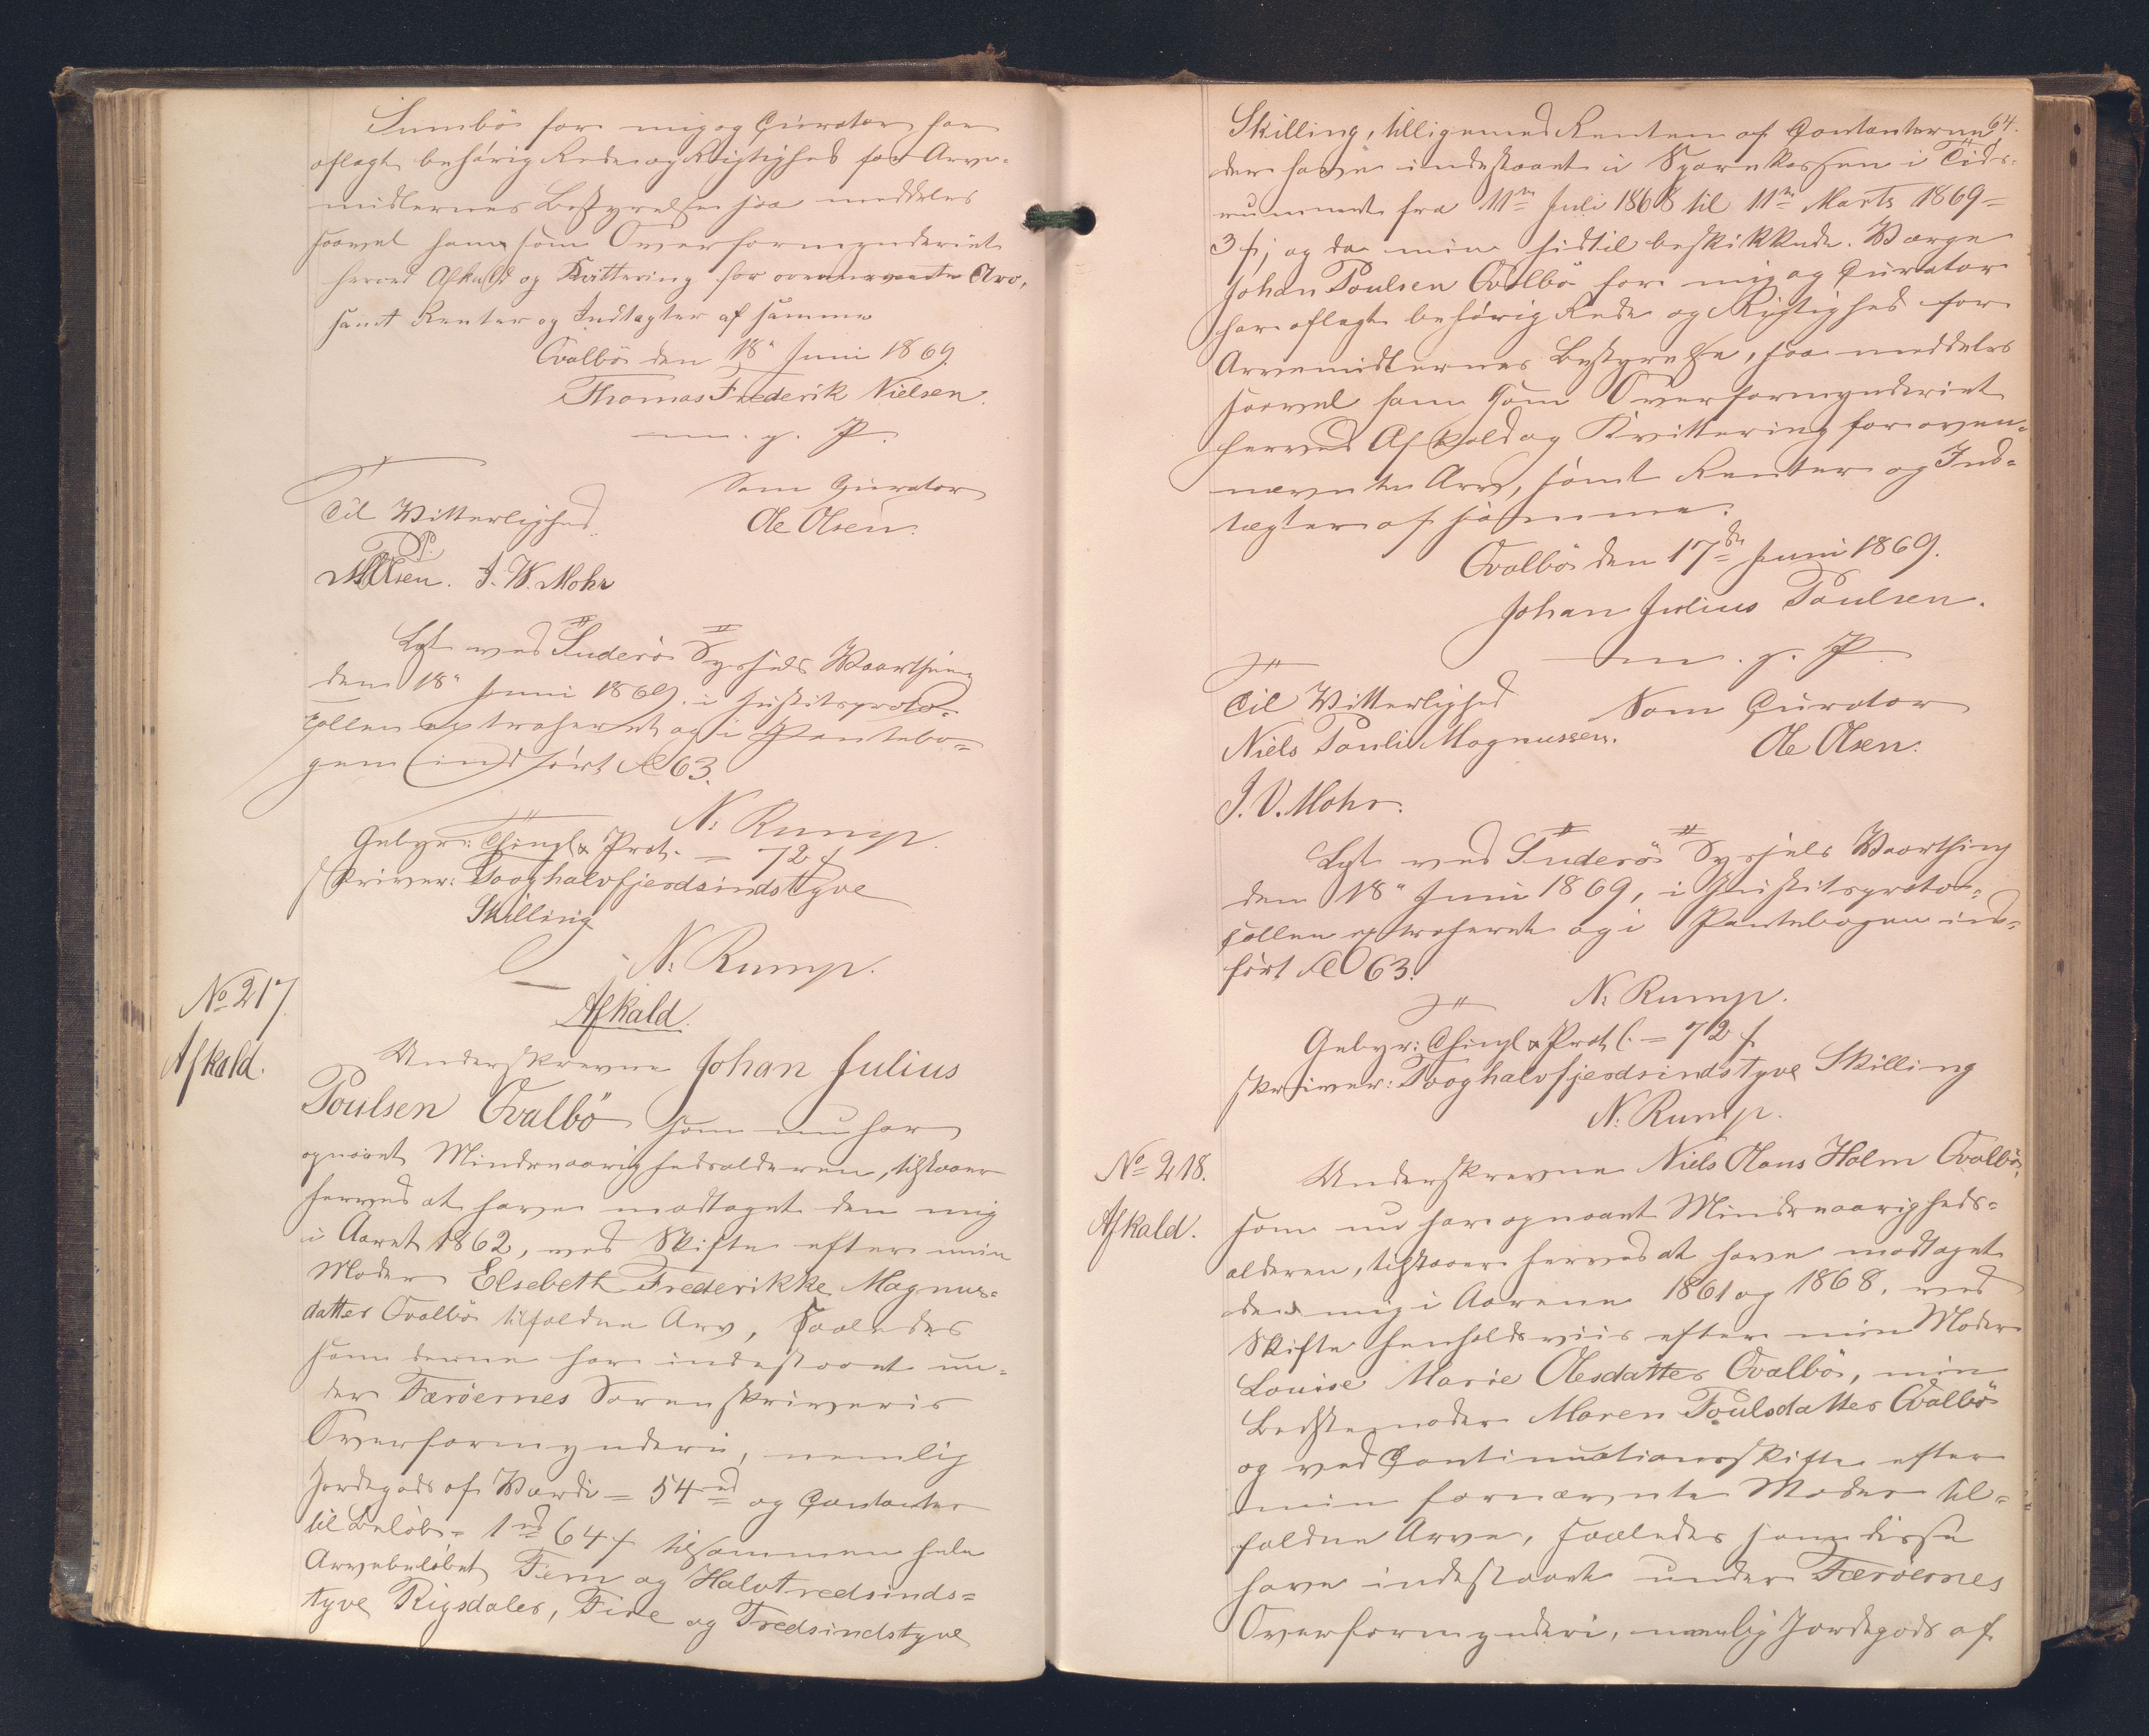 Sumbö for mig og Curator har
aflagt behörig Rede og Rigtighed for Arve-
midlernes Bestyrelse saa meddeles
saavel ham som Overformynderiet
herved Afkald og Kvittering for ovennævnte Arv,
samt Renter og Indtægter af samme
Qvalbö den 18" Juni 1869.
Thomas Frederik Nielsen.
m. p. P.
Som Curator
Til Vitterlighed.
Ole Olsen.
J. W. Mohr
Lyst ved Suderö Syssels Vaarthing
den 18" Juni 1869. i Justitsproto-
collen extraheret og i Pantebo-
gen indfört Fol 63.
N. Rump.
Gebyr: Thingl & Prot. = 72 s
skriver: Toog halvfjerdsindstyve
Skilling
N. Rump.
No 217
Afkald.
Afkald.
Underskrevne Johan Julius
Poulsen Qvalbö som nu har
opnaaet Mindreaarighedsalderen, tilstaaer
herved at have modtaget den mig
i Aaret 1862, ved Skifte efter min
Moder Elsebeth Frederikke Magnus-
datter Qvalbö tilfaldne Arv, saaledes
som denne har indestaaet un-
der Færöernes Sorenskriveris
Overformynderi, nemlig
Jordegods af Værdi = 54 rd og Contanter
til Belöb = 1 rd 64 s tilsammen hele
Arvebelöbet Fem og Halvtredsinds-
tyve Rigsdaler, Fire og Tredsindstyve
64.
Skilling, tilligemed Renten af Contanterne
der have indestaaet i Sparekassen i Tids-
rummet fra 11te Juli 1868 til 11te Marts 1869 =
3 s; og da min hidtil beskikkede Værge
Johan Poulsen Qvalbö for mig og Curator
har aflagt behörig Rede og Rigtighed for
Arvemidlernes Bestyrelse, saa meddeles
saavel ham som Overformynderiet
herved Afkald og Kvittering for oven-
nævnte Arv, samt Renter og Ind-
tægter af samme.
Qvalbö den 17de Juni 1869.
Johan Julius Poulsen.
m. p. P.
Til Vitterlighed
Som Curator
Niels Pauli Magnussen.
Ole Olsen.
J. V. Mohr.
Lyst ved Suderö Syssels Vaarthing
den 18" Juni 1869, i Justitsproto-
collen extraheret og i Pantebogen ind-
fört Fol 63.
N. Rump.
Gebyr: Thingl & Prot = 72 s
skriver: Toog halvfjerdsindstyve Skilling
N. Rump.
No 218.
Afkald.
Underskrevne Niels Olaus Holm Qvalbö,
som nu har opnaaet Mindreaarigheds-
alderen, tilstaaer herved at have modtaget
den mig i Aarene 1861 og 1868, ved
Skifte henholdsviis efter min Moder
Louise Marie Olesdatter Qvalbö, min
Bedstemoder Maren Poulsdatter Qvalbö
og ved Continuationsskifte efter
min fornævnte Moder til-
faldne Arve, saaledes som disse
have indestaaet under Færöernes
Overformynderi, nemlig Jordegods af